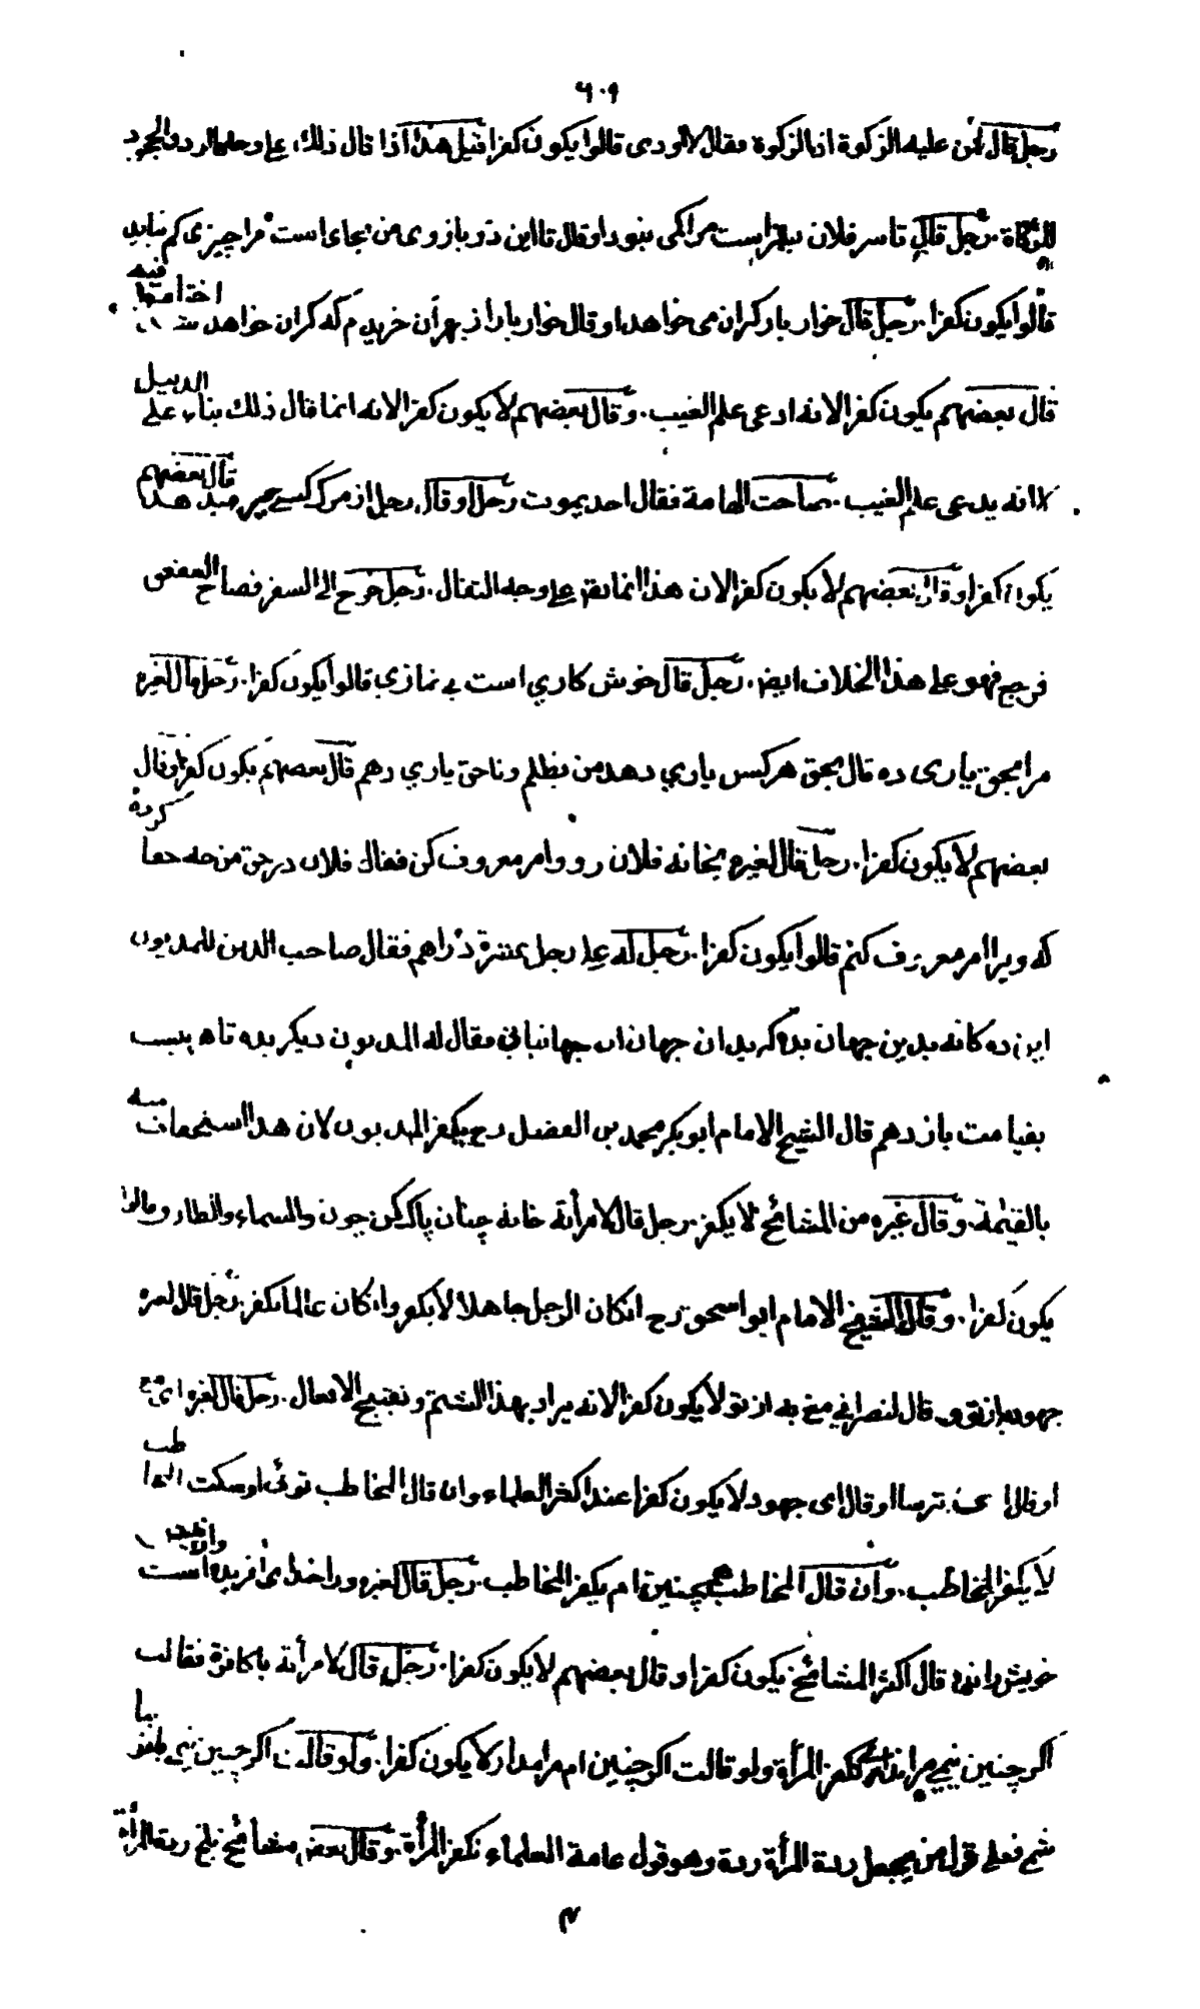 ٦٠٩
رجل قال لمن عليه الزكوة اد الزكوة فقال لا اودى قالوا يكون كفرا قيل هذا اذا قال ذلك على وجه الرد والجحود
للزكاة . رجل قال تا سر فلان بقراست مرا كمى نبود او قال تا اين دو بازوى من بجاى است مرا چيزى كم نيايد
قالوا يكون كفرا . رجل قال خوار بار كران مى خواهد او قال خوار بار از بهر آن خريدم كه كران خواهد شد اختلفوا فيه
قال بعضهم يكون كفرا لانه ادعى علم الغيب . وقال بعضهم لا يكون كفرا لانه انما قال ذلك بناء على الدليل
لا انه يدعى علم الغيب . صاحت الهامة فقال احد يموت رجل او قال رجل از مرك كسے خبر ميد هد قال بعضهم
يكون كفرا وقال بعضهم لا يكون كفرا لان هذا انما يقع على وجه التفال . رجل خرج الى السفر فصاح العقعق
فرجع فهو على هذا الخلاف ايض . رجل قال خوش كاري است بے نمازي قالوا يكون كفرا . رجل قال لغيره
مرا بحق يارى ده قال بحق هركس ياري دهد من بظلم وناحق ياري دهم قال بعضهم يكون كفرا وقال
بعضهم لا يكون كفرا . رجل قال لغيره بخانه فلان رو و امر معروف كن فقال فلان در حق من چه جفا كرده
كه ويرا امر معروف كنم قالوا يكون كفرا . رجل له على رجل عشرة دراهم فقال صاحب الدين للمديون
اين ده كانه بدين جهان بده كه بدان جهان فقال له المديون ديكر بده تاه بيست
بقيامت باز دهم قال الشيخ الامام ابو بكر محمد بن الفضل رح يكفر المديون لان هذا استخفاف منه
بالقيٰمة . وقال غيره من المشائخ لا يكفر . رجل قال لامرأته خانه چنان پاك كن چون والسماء والطارق قالوا
يكون كفرا . وقال الشيخ الامام ابو اسحق رح انكان الرجل جاهلا لا يكفر وانكان عالما يكفر . رجل قال لغيره
جهود به از تو و قال لنصراني مغ به از تو لا يكون كفرا لانه يراد بهذا الشتم وتقبيح الافعال . رجل قال لغيره اى مغ
او قال اى ترسا او قال اى جهود لا يكون كفرا عند اكثر العلماء وان قال المخاطب توئى او سكت المخاطب
لا يكفر المخاطب . وان قال المخاطب همچنين ام يكفر المخاطب . رجل قال لغيره ورا خداى آفريده است
خويش رانده قال اكثر المشائخ يكون كفرا و قال بعضهم لا يكون كفرا . رجل قال لامرأته يا كافرة فقالت
اكر چنين نيمے تكفر المرأة ولو قالت اكر چنين ام مرا مدار لا يكون كفرا . ولو قالت اكر چنين نيمے با تو نبا
شم فعلى قول من يجعل ردة المرأة ردة وهو قول عامة العلماء تكفر المرأة . وقال بعض مشائخ بلخ ردة المرأة